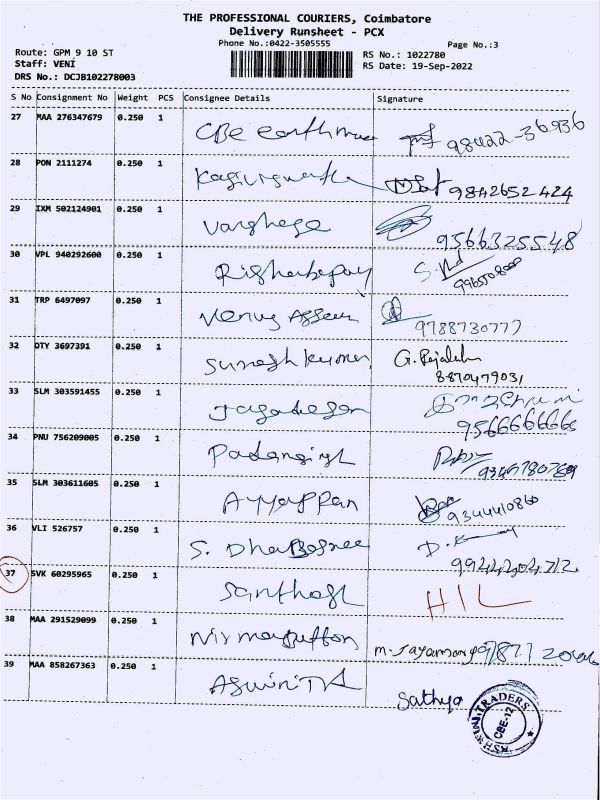 THE PROFESSIONAL COURIERS, Coimbatore
Delivery Runsheet - PCX
Phone No.:0422-3505555
Page No.:3
Route: GPM 9 10 ST
Staff: VENI
DRS No.: DCJB102278003
RS No.: 1022780
RS Date: 19-Sep-2022
S No Consignment No Weight PCS Consignee Details Signature
27 MAA 276347679 0.250 1 CBE earth 98422-36936
28 PON 2111274 0.250 1 9842652424
29 IXM 502124901 0.250 1 Varghese 9566325548
30 VPL 940292600 0.250 1
31 TRP 6497097 0.250 1 Venus 9788730777
32 OTY 3697391 0.250 1 Sumesh Kumar G. Rajalakshmi
8870479031
33 SLM 303591455 0.250 1 Jagadeesan 9566666666
34 PNU 756209005 0.250 1 Padamsingh
35 SLM 303611605 0.250 1 Ayyappan 9344410860
36 VLI 526757 0.250 1 S. D.
37 SVK 60295965 0.250 1 Santhosh
38 MAA 291529099 0.250 1
39 MAA 858267363 0.250 1 Aswini Sathya
ASHWINI TRADERS
CBE-12